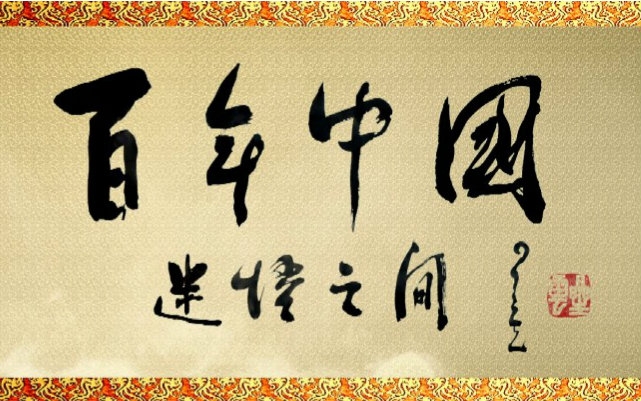 百年中國
迷悟之間
星雲